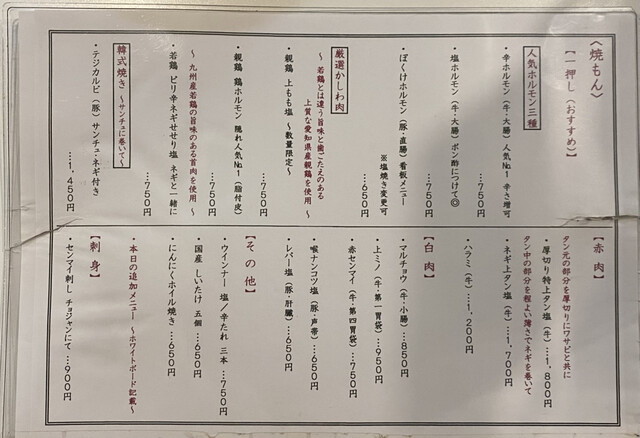 〈焼もん〉
【一押し(おすすめ)】
人気ホルモン三種
・辛ホルモン(牛・大腸)人気№1 辛さ増可
…750円
・塩ホルモン(牛・大腸)ポン酢につけて◎
…750円
・ぼくけホルモン(豚・直腸)看板メニュー
※塩焼き変更可
…650円
厳選かしわ肉
～若鶏とは違う旨味と歯ごたえのある
上質な愛知県産親鶏を使用～
・親鶏 上もも塩 ～数量限定～
…750円
・親鶏 鶏ホルモン 隠れ人気№1(脂付皮)
…750円
～九州産若鶏の旨味のある首肉を使用～
・若鶏 ピリ辛ネギせせり塩 ネギと一緒に
…750円
韓式焼き ～サンチュに巻いて～
・テジカルビ(豚)サンチュ・ネギ付き
…1,450円
【赤肉】
タン元の部分を厚切りにワサビと共に
・厚切り特上タン塩(牛)…1,800円
タン中の部分を程よい薄さでネギを巻いて
・ネギ上タン塩(牛)…1,700円
・ハラミ(牛)…1,200円
【白肉】
・マルチョウ(牛・小腸)…850円
・上ミノ(牛・第一胃袋)…950円
・赤センマイ(牛・第四胃袋)…750円
・喉ナンコツ塩(豚・声帯)…650円
・レバー塩(豚・肝臓)…650円
【その他】
・ウインナー 塩/辛たれ 三本…750円
・国産 しいたけ 五個…650円
・にんにくホイル焼き…650円
・本日の追加メニュー ～ホワイトボード記載～
【刺身】
・センマイ刺し チョジャンにて…900円